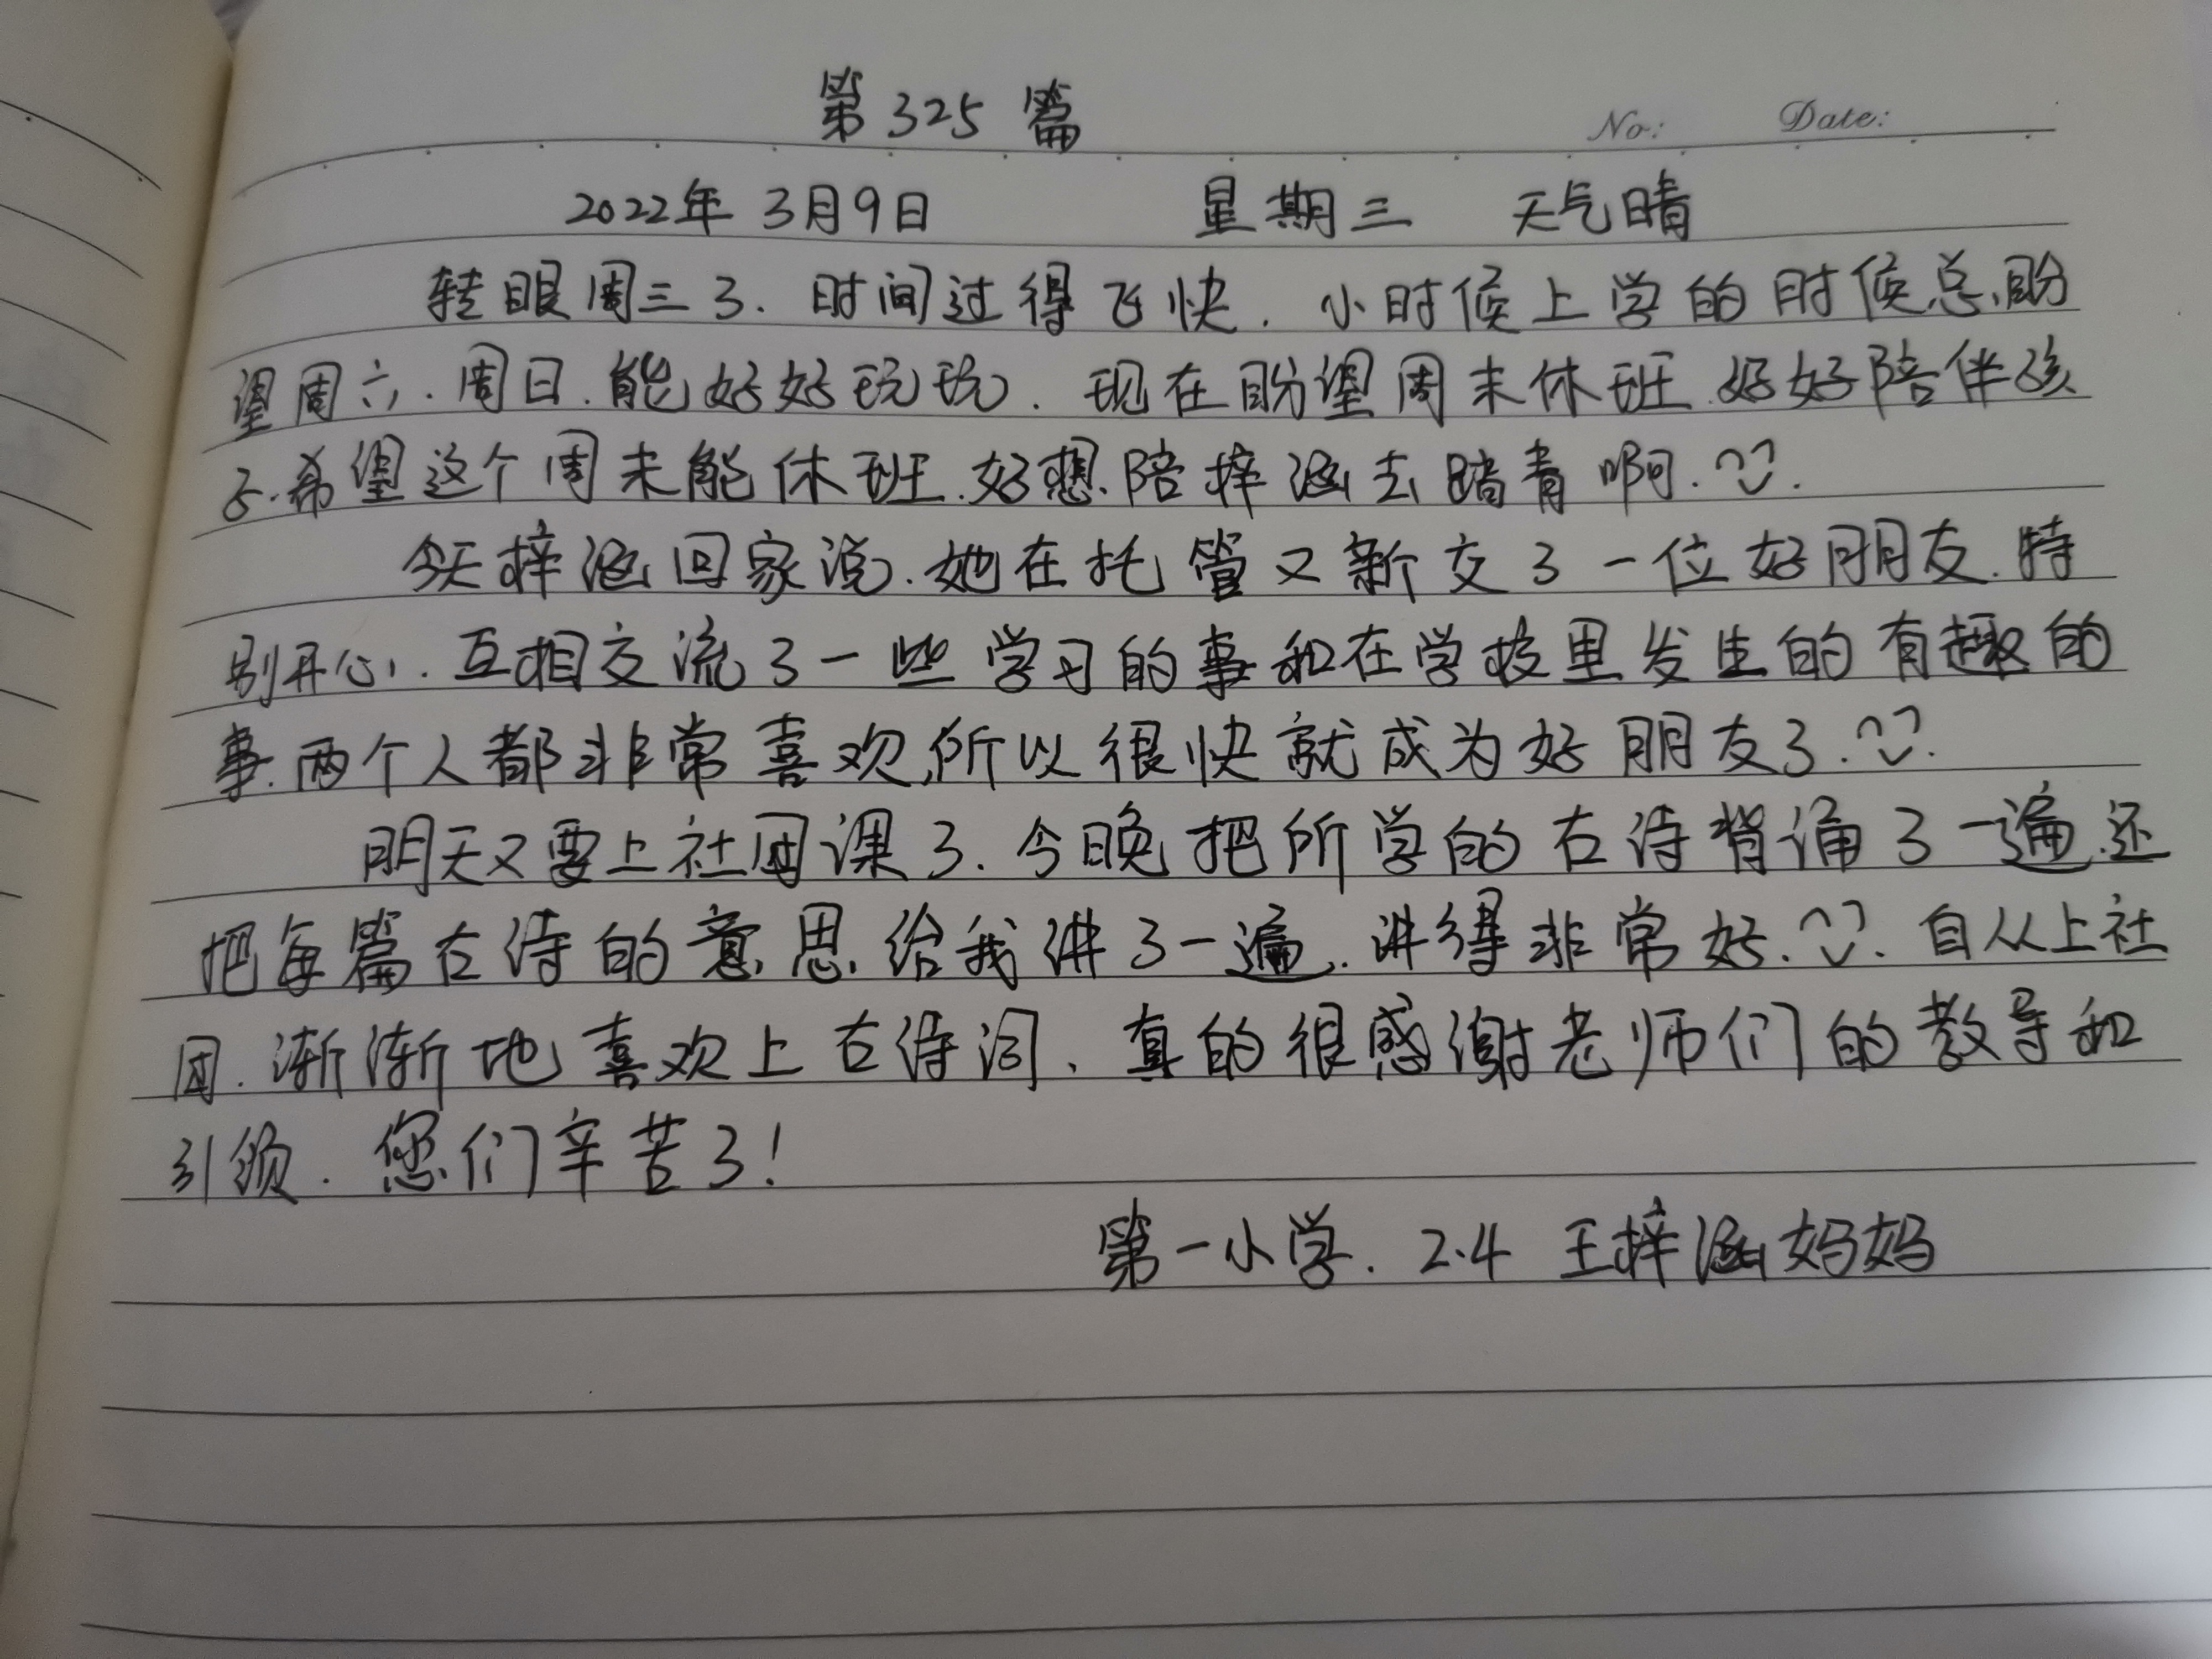 第325篇
No: Date:
2022年3月9日 星期三 天气晴
转眼周三了.时间过得飞快.小时候上学的时候总盼
望周六.周日.能好好玩玩.现在盼望周末休班.好好陪伴孩
子.希望这个周末能休班.好想陪梓涵去踏青啊.
今天梓涵回家说.她在托管又新交了一位好朋友.特
别开心.互相交流了一些学习的事和在学校里发生的有趣的
事.两个人都非常喜欢,所以很快就成为好朋友了.
明天又要上社团课了.今晚把所学的古诗背诵了一遍.还
把每篇古诗的意思给我讲了一遍.讲得非常好.自从上社
团.渐渐地喜欢上古诗词、真的很感谢老师们的教导和
引领.您们辛苦了!
第一小学.2.4 王梓涵妈妈